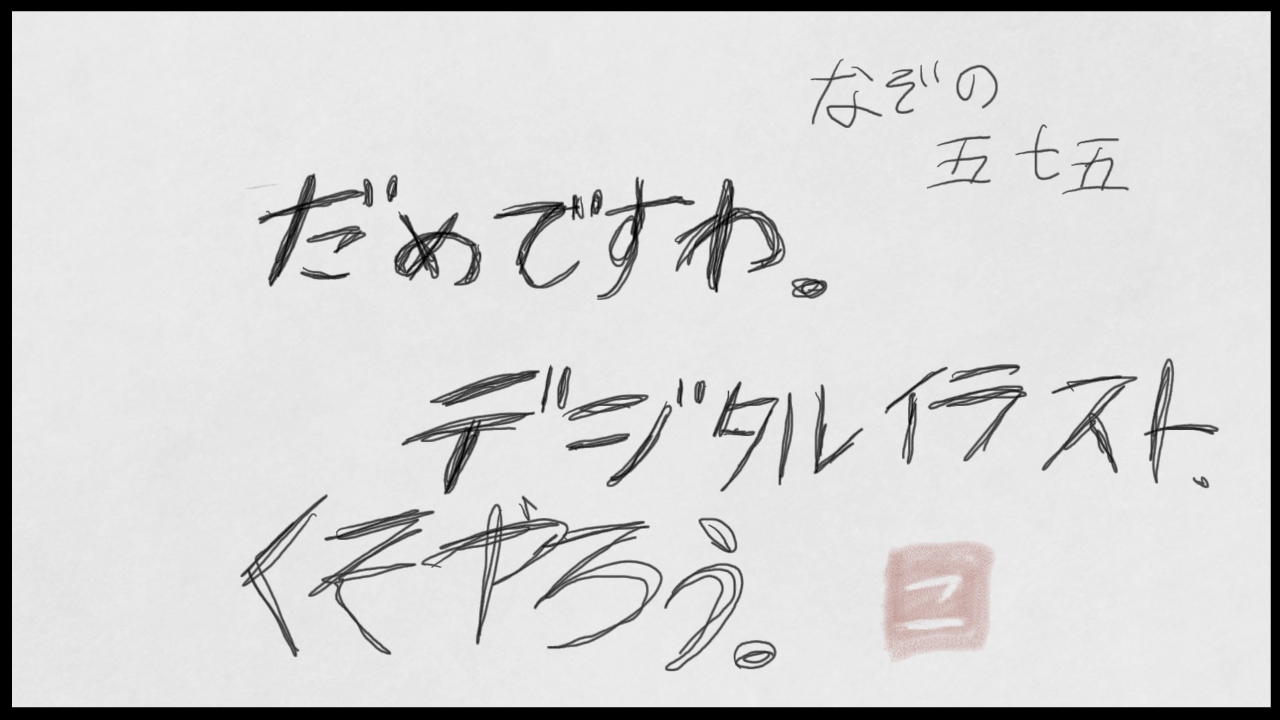 なぞの
五七五
だめですわ。
デジタルイラスト。
くそやろう。
コ